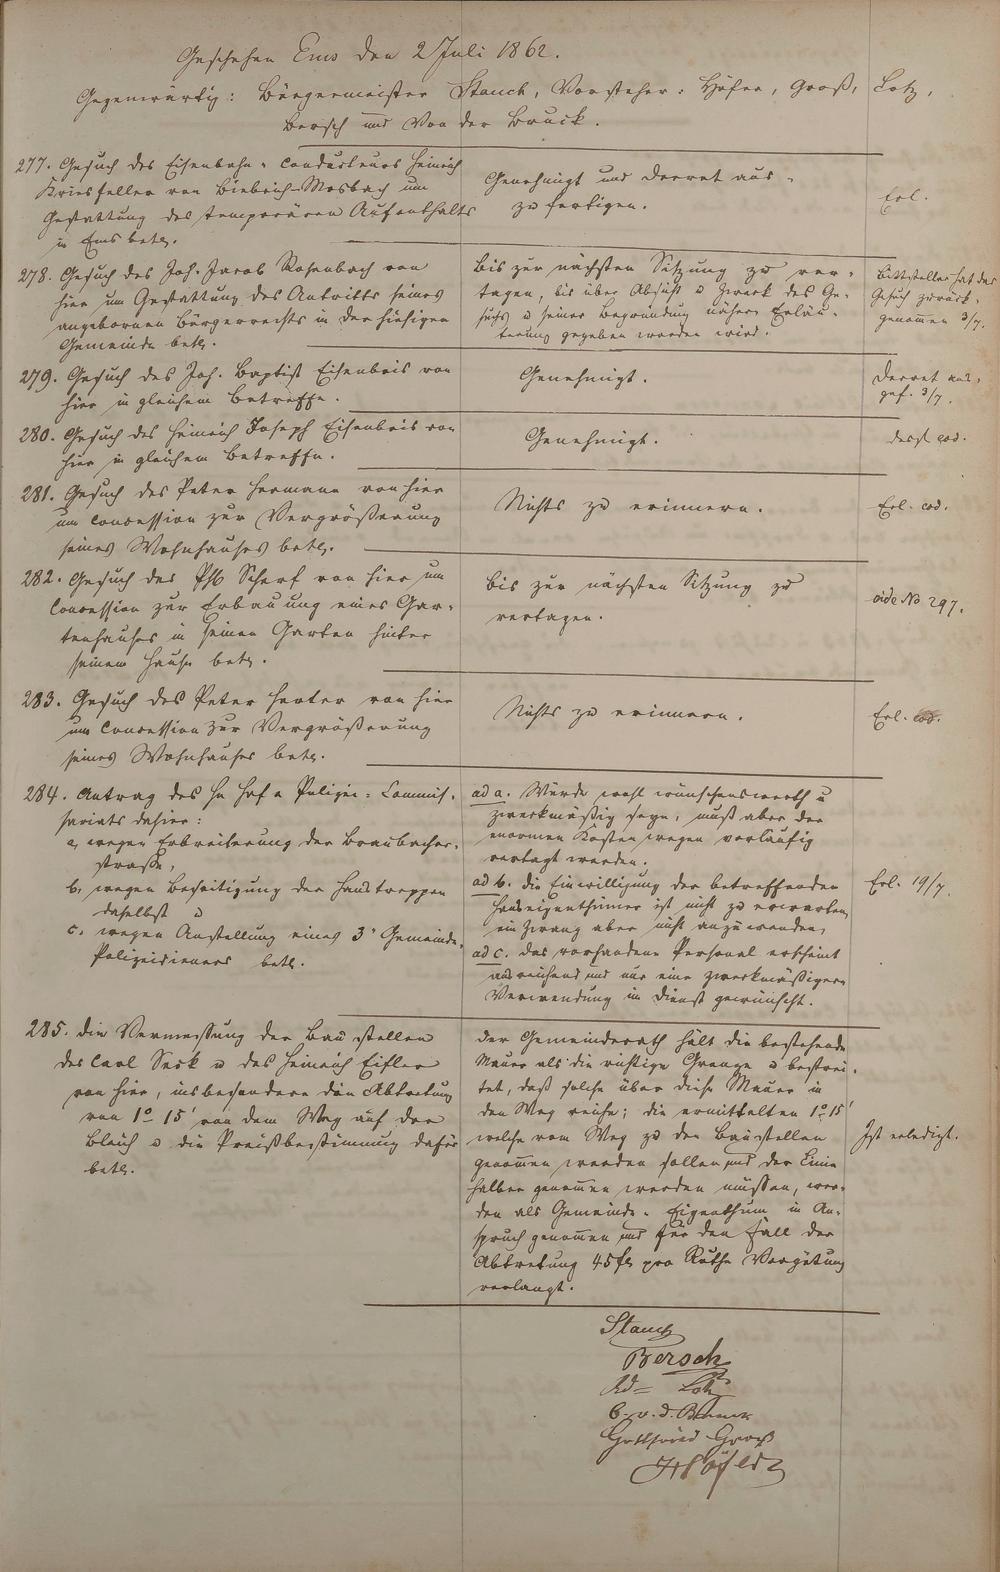 Geschehen Ems den 2 Juli 1862.
Gegenwärtig: Bürgermeister Stauch, Vorsteher: Höfer, Groß, Lotz,
Bersch und Von der Bruck.
277. Gesuch des Eisenbahn-Conducteurs Heinrich
Kriesfeller von Biebrich-Mosbach um
Gestattung des temporären Aufenthalts
in Ems betr.
Genehmigt und Decret aus-
zufertigen.
Erl.
278. Gesuch des Joh. Jacob Rosenbach von
hier um Gestattung des Antritts seines
angebornen Bürgerrechts in der hiesigen
Gemeinde betr.
Bis zur nächsten Sitzung zu ver-
tagen, bis über Absicht u Zweck des Ge-
suchs u seiner Begründung nähere Erläu-
terung gegeben worden wird.
Bittsteller hat das
Gesuch zurück-
genommen 3/7.
279. Gesuch des Joh. Baptist Eisenbeis von
hier in gleichem Betreffe.
Genehmigt.
Decret aus-
gef. 3/7.
280. Gesuch des Heinrich Joseph Eisenbeis von
hier in gleichem Betreffe.
Genehmigt.
desgl. eod.
281. Gesuch des Peter Hermann von hier
um Concession zur Vergrößerung
seines Wohnhauses betr.
Nichts zu erinnern.
Erl. eod.
282. Gesuch des Ph Scharf von hier um
Concession zur Erbauung eines Gar-
tenhauses in seinen Garten hinter
seinem Hause betr.
Bis zur nächsten Sitzung zu
vertagen.
vide No 297.
283. Gesuch des Peter Herter von hier
um Concession zur Vergrößerung
seines Wohnhauses betr.
Nichts zu erinnern.
Erl. eod.
284. Antrag des Polizei-Commis-
sariats dahier:
a, wegen Erbreiterung der Braubacher-
straße,
b, wegen Beseitigung der Haustreppen
daselbst u
c, wegen Anstellung eines 3n Gemeinde-
Polizeidieners betr.
ad a. Würde wohl wünschenswerth u
zweckmäßig seyn, muß aber der
enormen Kosten wegen vorläufig
vertagt werden.
ad b. die Einwilligung der betreffenden
Hauseigenthümer ist nicht zu erwarten,
ein Zwang aber nicht anzuwenden,
ad c. das vorhandene Personal erscheint
ausreichend und nur eine zweckmäßigere
Verwendung im Dienst gewünscht.
Erl. 19/7.
285. die Vermessung der Baustellen
des Carl Seck u des Heinrich Eifler
von hier, insbesondere die Abtretung
von 1° 15' von dem Weg auf der
Bleich u die Preißbestimmung dafür
betr.
der Gemeinderath hält die bestehende
Mauer als die richtige Grenze u bestrei-
tet, daß solche über diese Mauer in
den Weg reiche; die ermittelten 1° 15'
welche vom Weg zu den Baustellen
genommen werden sollen und der Linie
halber genommen werden müssen, wer-
den als Gemeinde-Eigenthum in An-
spruch genommen und für den Fall der
Abtretung 45 fl pro Ruthe Vergütung
verlangt.
Ist erledigt.
Stauch
Bersch
Ad= Lotz
C. v. d. Bruck
Gottfried Groß